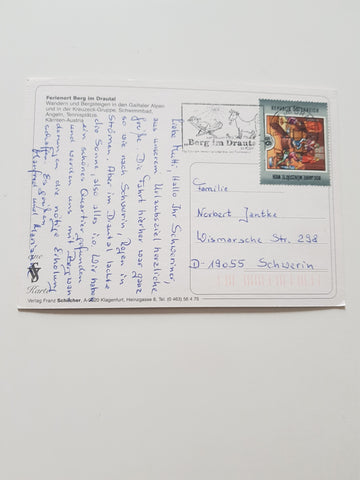 Ferienort Berg im Drautal
Wandern und Bergsteigen in den Gailtaler Alpen
und in der Kreuzeck-Gruppe, Schwimmbad,
Angeln, Tennisplätze.
Kärnten-Austria
Liebe Mutti, Hallo Ihr Schweriner,
aus unserem Urlaubsziel herzliche
Grüße. Die Fahrt hierher war ganz
so wie nach Schwerin, Regen in
Strömen. Aber im Drautal lachte
die Sonne, also alles i.O. Wir haben
ein schönes Quartier gefunden
und werden uns mit Bergwan
derungen die nötige Erholung
schaffen. Es grüßen
Manfred und Mariann
Berg im Drautal
REPUBLIK ÖSTERREICH
6
Familie
Norbert Jantke
Wismarsche Str. 298
D-19055 Schwerin
Karte
Verlag Franz Schilcher, A-9020 Klagenfurt, Heinzgasse 6, Tel. (0 463) 56 4 75